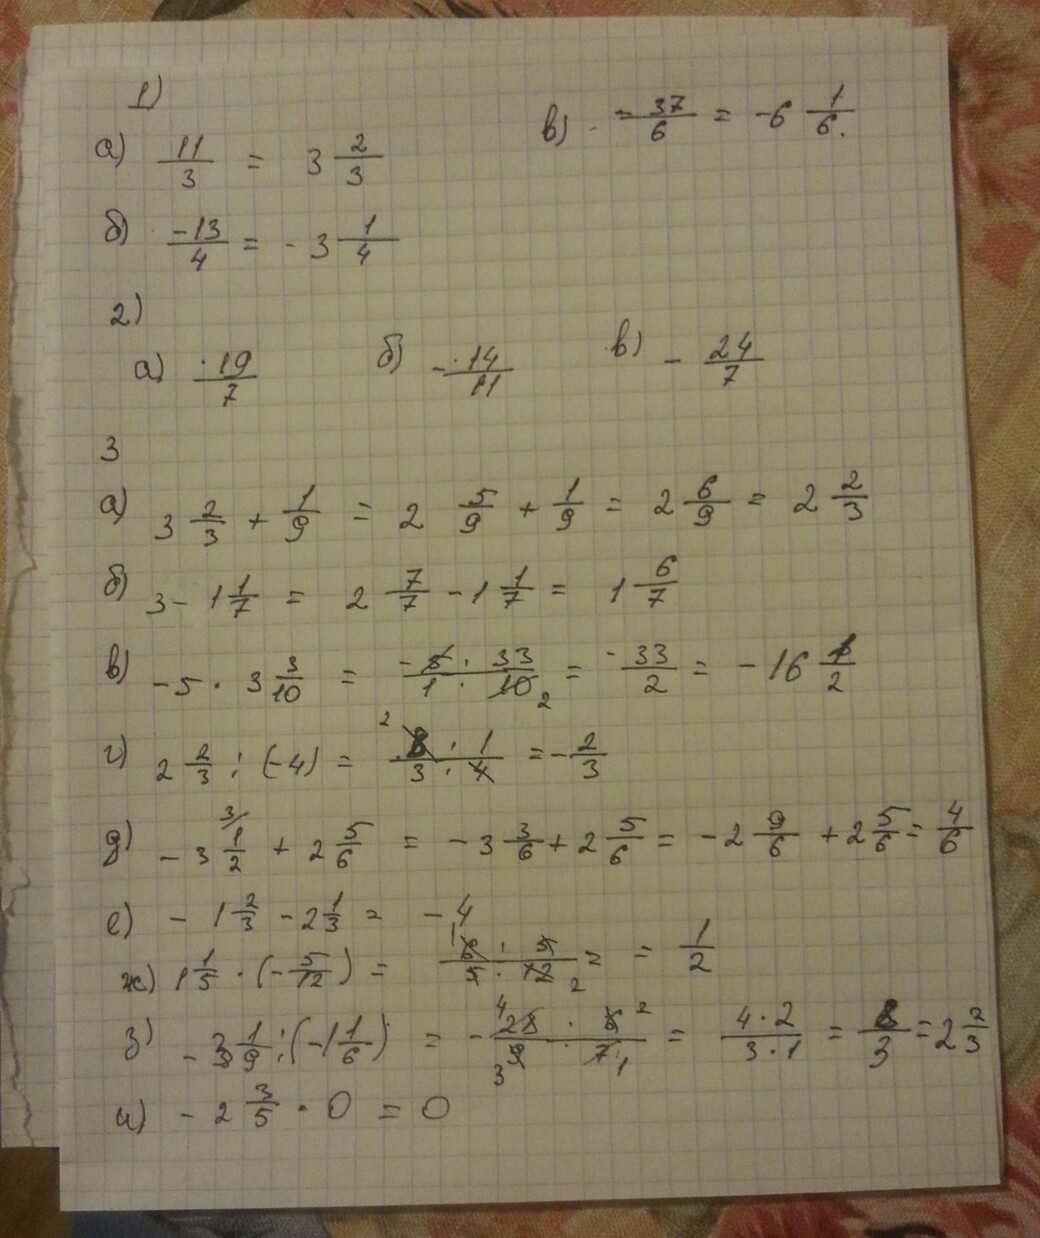 1)
а) 11/3 = 3 2/3
в) -37/6 = -6 1/6.
б) -13/4 = -3 1/4
2)
а) 19/7 б) -14/11 в) -24/7
3
а) 3 2/3 + 1/9 = 2 5/9 + 1/9 = 2 6/9 = 2 2/3
б) 3 - 1 1/7 = 2 7/7 - 1 1/7 = 1 6/7
в) -5 · 3 3/10 = -5/1 · 33/10 2 = -33/2 = -16 1/2
г) 2 2/3 : (-4) = 2 8/3 · 1/4 = -2/3
д) -3 3/ 1/2 + 2 5/6 = -3 3/6 + 2 5/6 = -2 9/6 + 2 5/6 = 4/6
е) -1 2/3 - 2 1/3 = -4
ж) 1 1/5 · (-5/12) = 1 6/5 · 5/12 2 = = 1/2
з) -3 1/9 : (-1 1/6) = - 4 28/9 3 · 6/7 2 1 = 4·2/3·1 = 8/3 = 2 2/3
и) -2 3/5 · 0 = 0